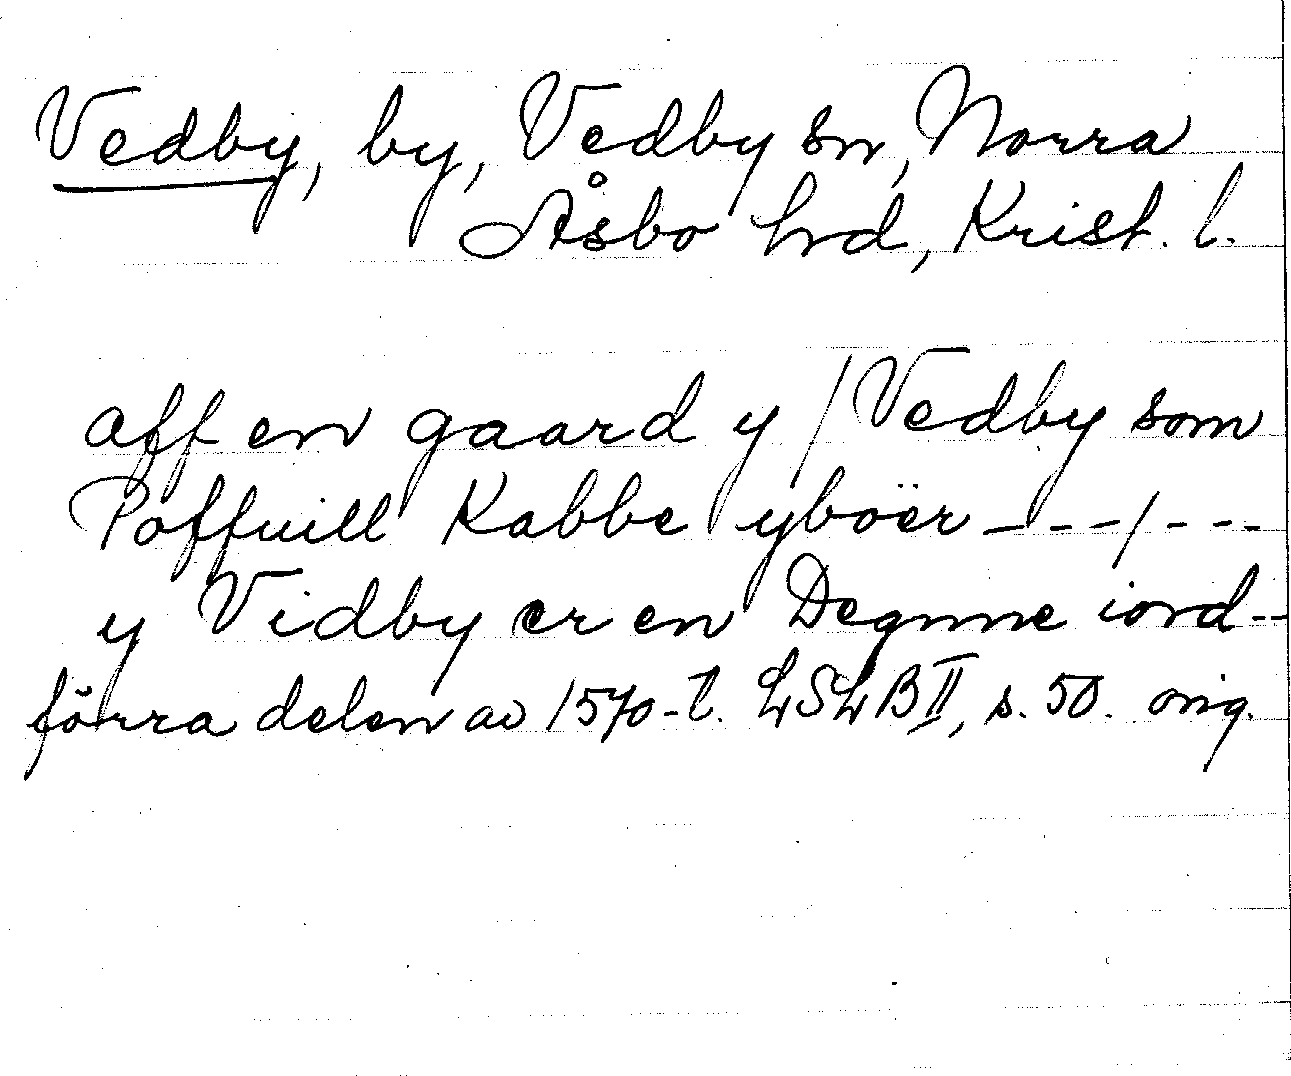 Vedby, by, Vedby sn, Norra
Åsbo hrd, Krist. l.
aff en gaard y / Vedby som
Poffuill Kabbe yboër - - - / - - -
y Vidby er en Degnne iord--
förra delen av 1570-t. LSLB II, s. 50. orig.